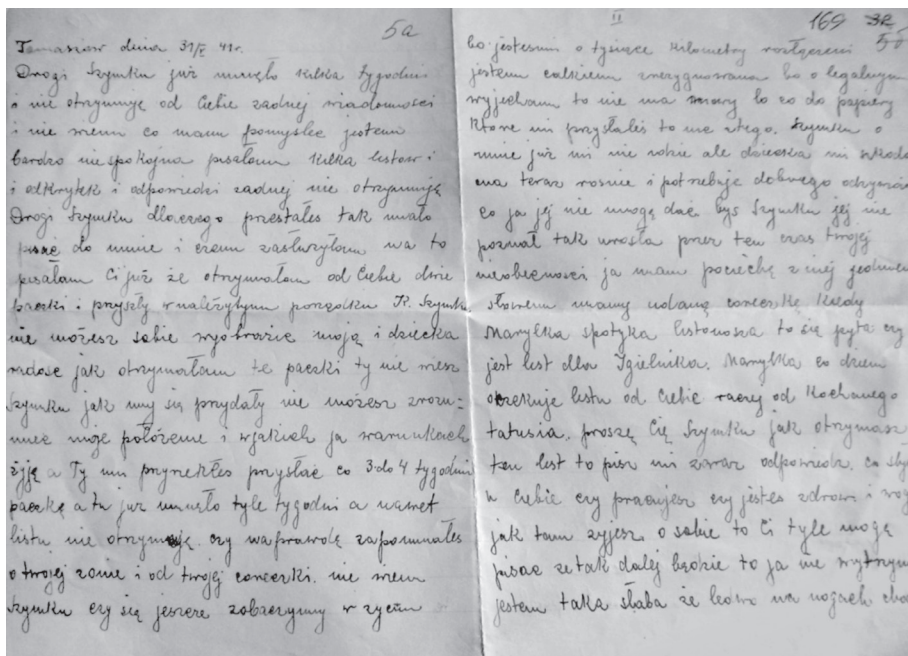 5a
Tomaszów dnia 31/V 41r.
Drogi Szymku już minęło kilka tygodni
i nie otrzymuję od Ciebie zadnej wiadomości
i nie wiem co mam pomyśleć jestem
bardzo niespokojna pisałam kilka listów i
i odkrytek i odpowiedzi zadnej nie otrzymuję
Drogi Szymku dlaczego przestałes tak mało
pisać do mnie i czem zasłużyłam na to
pisałam Ci już że otrzymałam od Ciebie dwie
paczki i przyszły w należytym porządku K. Szymku
nie możesz sobie wyobrazić moją i dziecka
radość jak otrzymałam te paczki ty nie wiesz
Szymku jak mnj się przydały nie możesz zrozu=
mieć moje położenie i w jakich ja warunkach
żyję a Ty mi przyrekłes przysłać co 3 do 4 tygodni
paczkę a tu już minęło tyle tygodni a nawet
listu nie otrzymuję. czy naprawdę zapomniałes
o twojej zonie i od twojej córeczki. nie wiem
Szymku czy się jeszcze zobaczymy w życiu
II
169 32
50
bo jesteśmi o tysiące kilometry rozłączeni
jestem całkiem zrezygnowana bo o legalnym
wyjechaniu to nie ma mowy bo co do papiery
które mi przysłałeś to nic z tego. Szymku o
mnie już mi nie idzie ale dziecka mi szkoda
ona teraz rosnie i potrzebuje dobrego odżywia
co ja jej nie mogę dać byś Szymku jej nie
poznał tak urosła przez ten czas twojej
nieobecności ja mam pociechę z niej jednem
słowem mamy udaną córeczkę kiedy
Marylka spotyka listonosza to się pyta czy
jest list dla Igielnika. Marylka co dzien
oczekuje listu od Ciebie raczej od Kochanego
tatusia. proszę Cię Szymku jak otrzymasz
ten list to pisz mi zaraz odpowiedz. co słych
u Ciebie czy pracujesz czy jesteś zdrowi i wog
jak tam zyjesz. o sobie to Ci tyle mogę
pisać ze tak dalej będzie to ja nie wytrzym
jestem taka słaba że ledwo na nogach chod